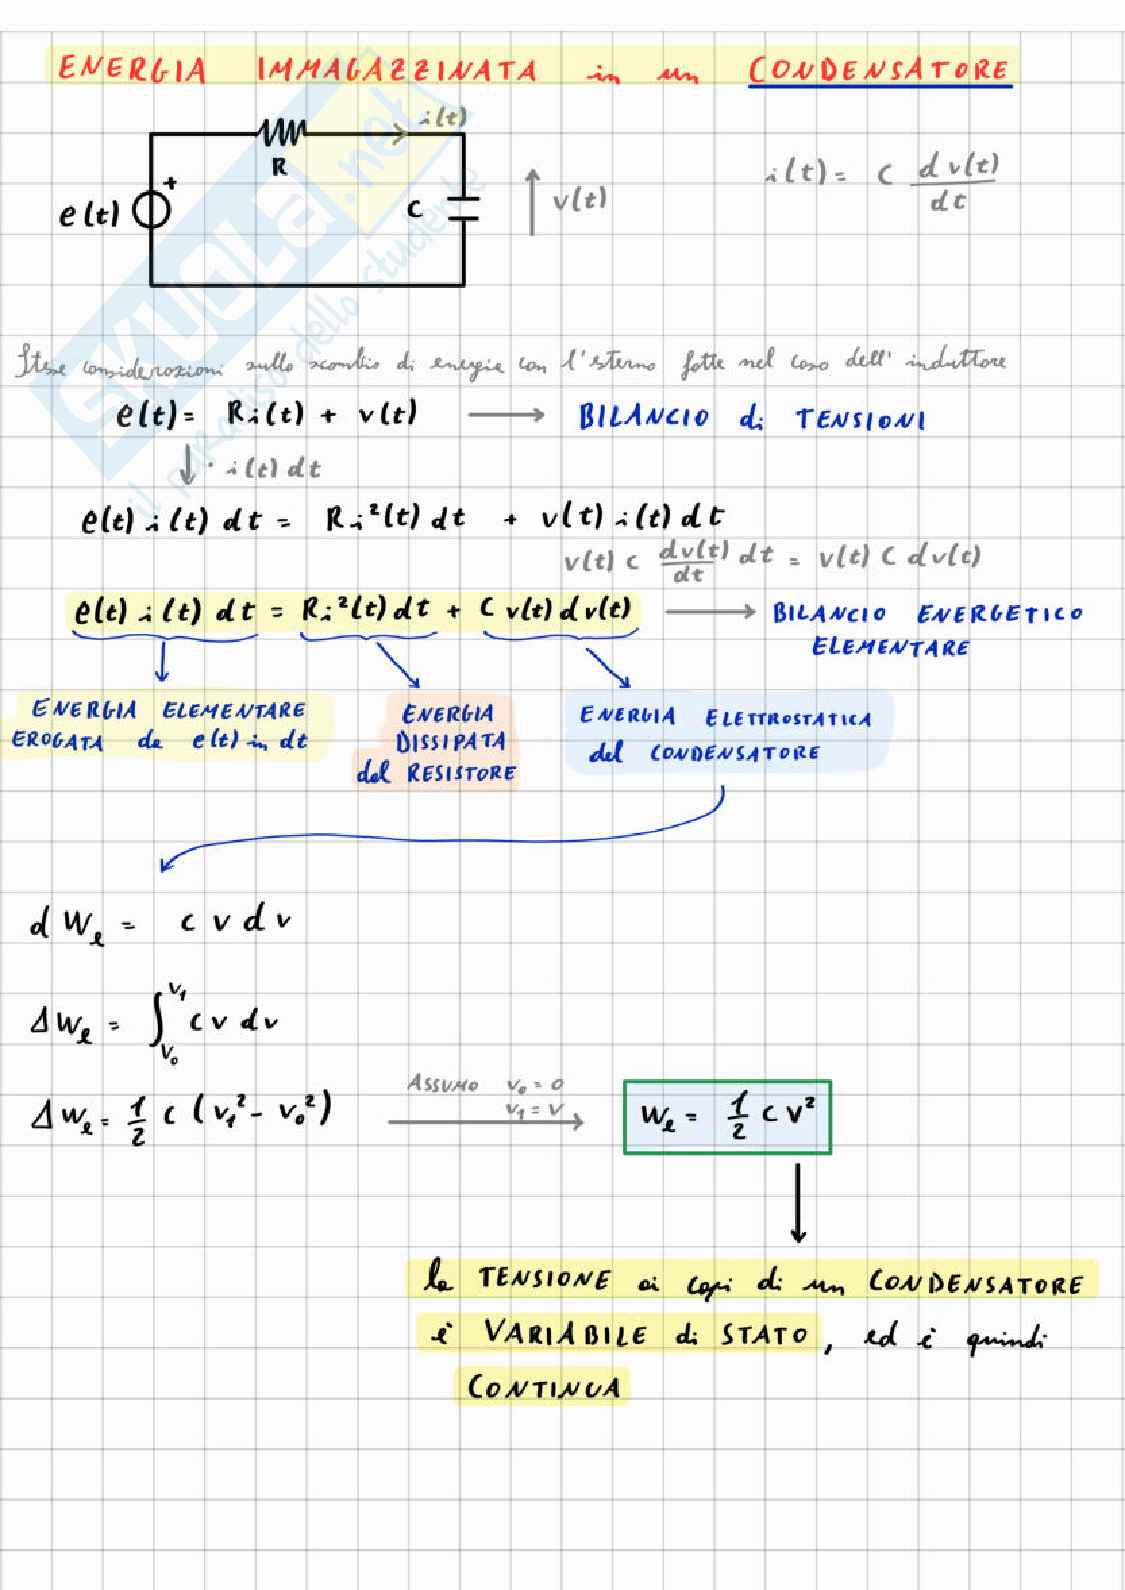 ENERGIA IMMAGAZZINATA in un CONDENSATORE
i(t)
R
+
e(t)
C
v(t)
i(t) = C dv(t)/dt
SKUOLA.net
il paradiso dello studente
Stesse considerazioni sullo scambio di energia con l'esterno fatte nel caso dell'induttore
e(t) = Ri(t) + v(t) → BILANCIO di TENSIONI
↓ · i(t) dt
e(t) i(t) dt = Ri²(t) dt + v(t) i(t) dt
v(t) C dv(t)/dt dt = v(t) C dv(t)
e(t) i(t) dt = Ri²(t) dt + C v(t) dv(t) → BILANCIO ENERGETICO
ELEMENTARE
ENERGIA ELEMENTARE
EROGATA da e(t) in dt
ENERGIA
DISSIPATA
dal RESISTORE
ENERGIA ELETTROSTATICA
del CONDENSATORE
d We = C v dv
ΔWe = ∫_{V0}^{V1} C v dv
ΔWe = 1/2 C (V1² - V0²)
ASSUMO V0 = 0
V1 = V
We = 1/2 C V²
la TENSIONE ai capi di un CONDENSATORE
è VARIABILE di STATO, ed è quindi
CONTINUA